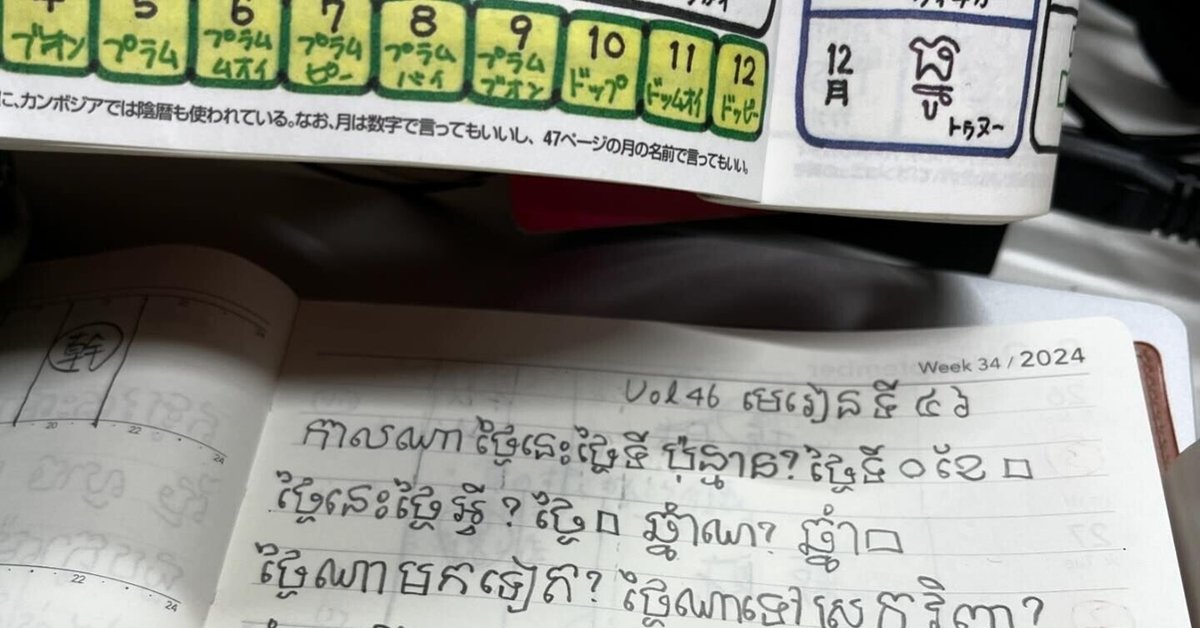 4 5 6 7 8 9 10 11 12
ブオン プラム プラム プラム プラム プラム ドップ ドッムオイ ドッピー
ムオイ ピー バイ ブオン
に、カンボジアでは陰暦も使われている。なお、月は数字で言ってもいいし、47ページの月の名前で言ってもいい。
12月 ធ្នូ
トゥヌー
幹
20 22 24
22 24
Week 34 / 2024
Vol 46 មេរៀនទី ៤៦
កាលណា ថ្ងៃនេះថ្ងៃទី ប៉ុន្មាន? ថ្ងៃទី ០ ខែ □
ថ្ងៃនេះថ្ងៃអ្វី? ថ្ងៃ □ ឆ្នាំណា? ឆ្នាំ □
ថ្ងៃណាមកទៀត? ថ្ងៃណាទៅស្រុកវិញ?